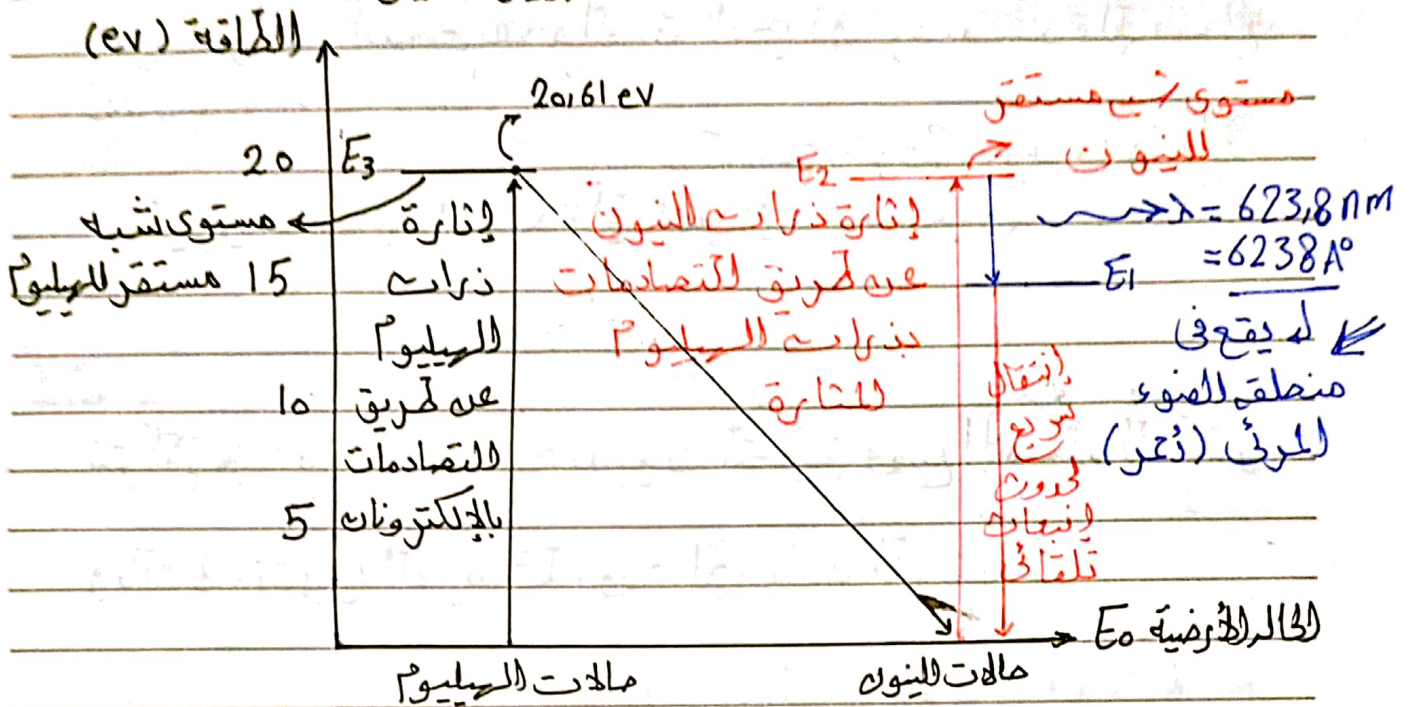 الطاقة (ev)
20,61 ev
مستوى شبه مستقر
للنيون
20
E3
E2
مستوى شبه
مستقر للهيليوم
15
10
5
إثارة
ذرات
الهيليوم
عن طريق
التصادمات
بالإلكترونات
إثارة ذرات النيون
عن طريق التصادمات
بذرات الهيليوم
المثارة
λ = 623,8 nm
=6238 A°
E1
يقع فى
منطقة الضوء
المرئى (أحمر)
إنتقال
سريع
لحدوث
إنبعاث
تلقائى
الحالة الأرضية E0
حالات الهيليوم
حالات النيون